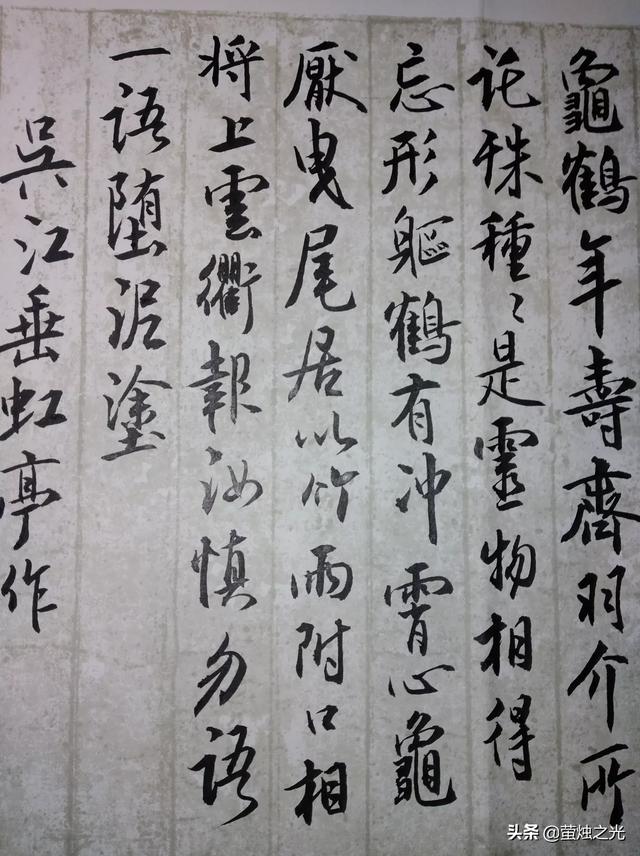 龜鶴年壽齊羽介所
託殊種〻是靈物相得
忘形軀鶴有冲霄心龜
厭曳尾居以竹兩附口相
将上雲衢報汝慎勿語
一語堕泥塗
吳江垂虹亭作
头条 @萤烛之光